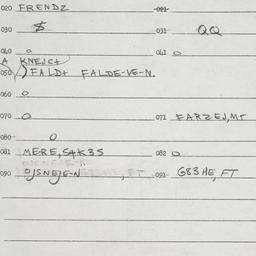 020 FRENDZ 021
030 $ 031 QQ
040 o 041 o
A KNEJCT
050 FALDT FALDE-VE-N.
060 o
070 o 071 FARZEJ,MT
080 o
081 MERE, S4K3S 082 o
090 OJSNEJE-N , FT 091 G83HE, FT